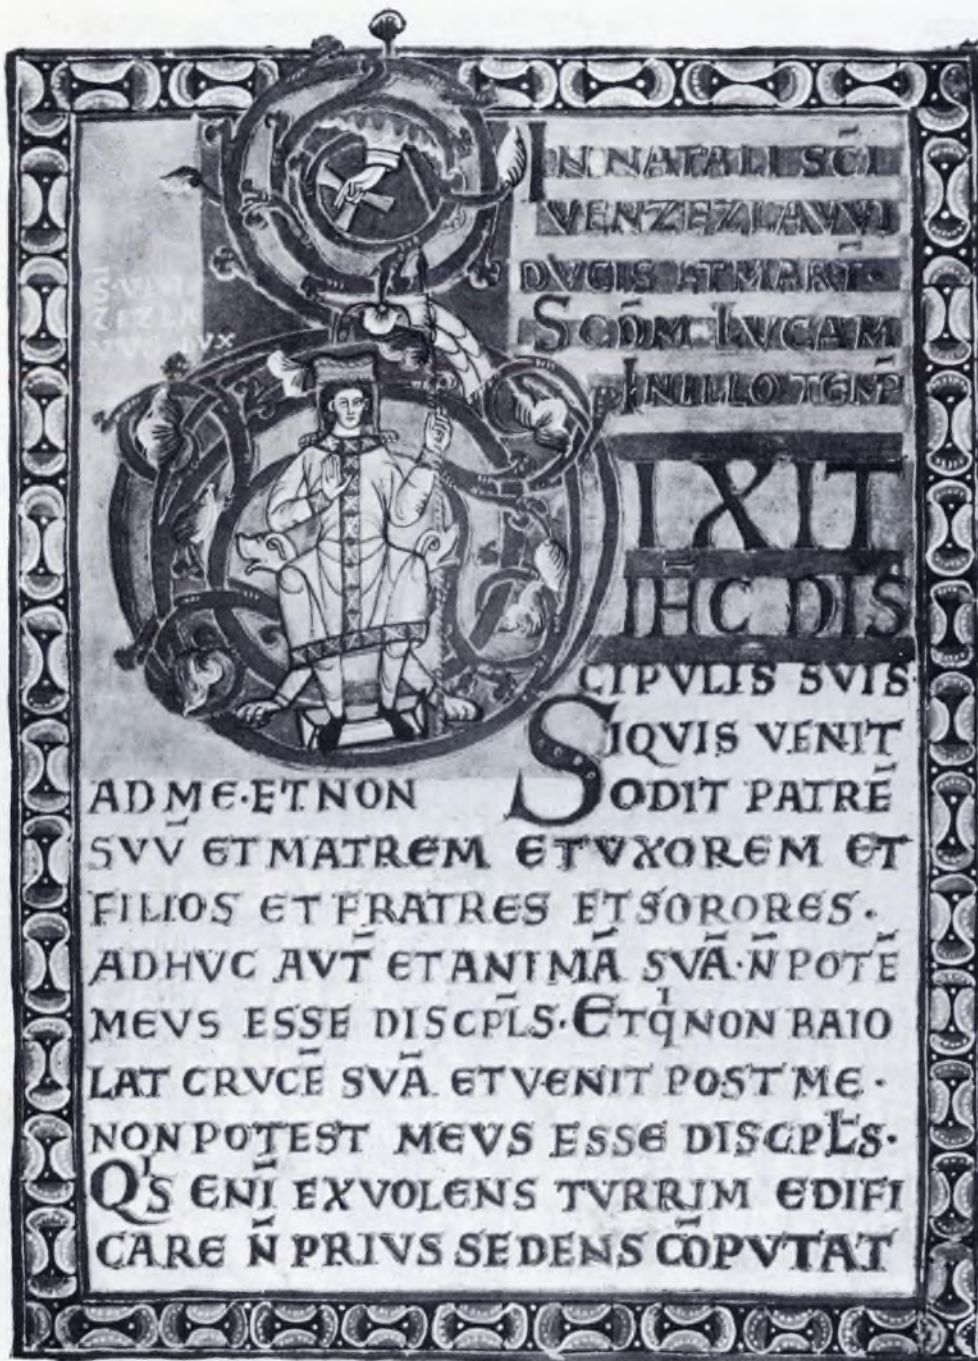 IN NATALI SC̄I
VENZEZLAVVI
DVCIS ET MART̄·
SCD̄M LVCAM
IN ILLO TEMP̄
S̄·VEN
ZIZLA
VVS DVX
DIXIT
IH̄C DIS
CIPVLIS SVIS·
SIQVIS VENIT
AD ME·ET NON ODIT PATRĒ
SVV̄ ET MATREM ET VXOREM ET
FILIOS ET FRATRES ET SORORES·
ADHVC AVT̄ ET ANIMĀ SVĀ·N̄ POTĒ
MEVS ESSE DISCPL̄S·ET QͥNON BAIO
LAT CRVCĒ SVĀ ET VENIT POST ME·
NON POTEST MEVS ESSE DISCPL̄S·
QͥS ENĪ EX VOLENS TVRRIM EDIFI
CARE N̄ PRIVS SEDENS CŌPVTAT